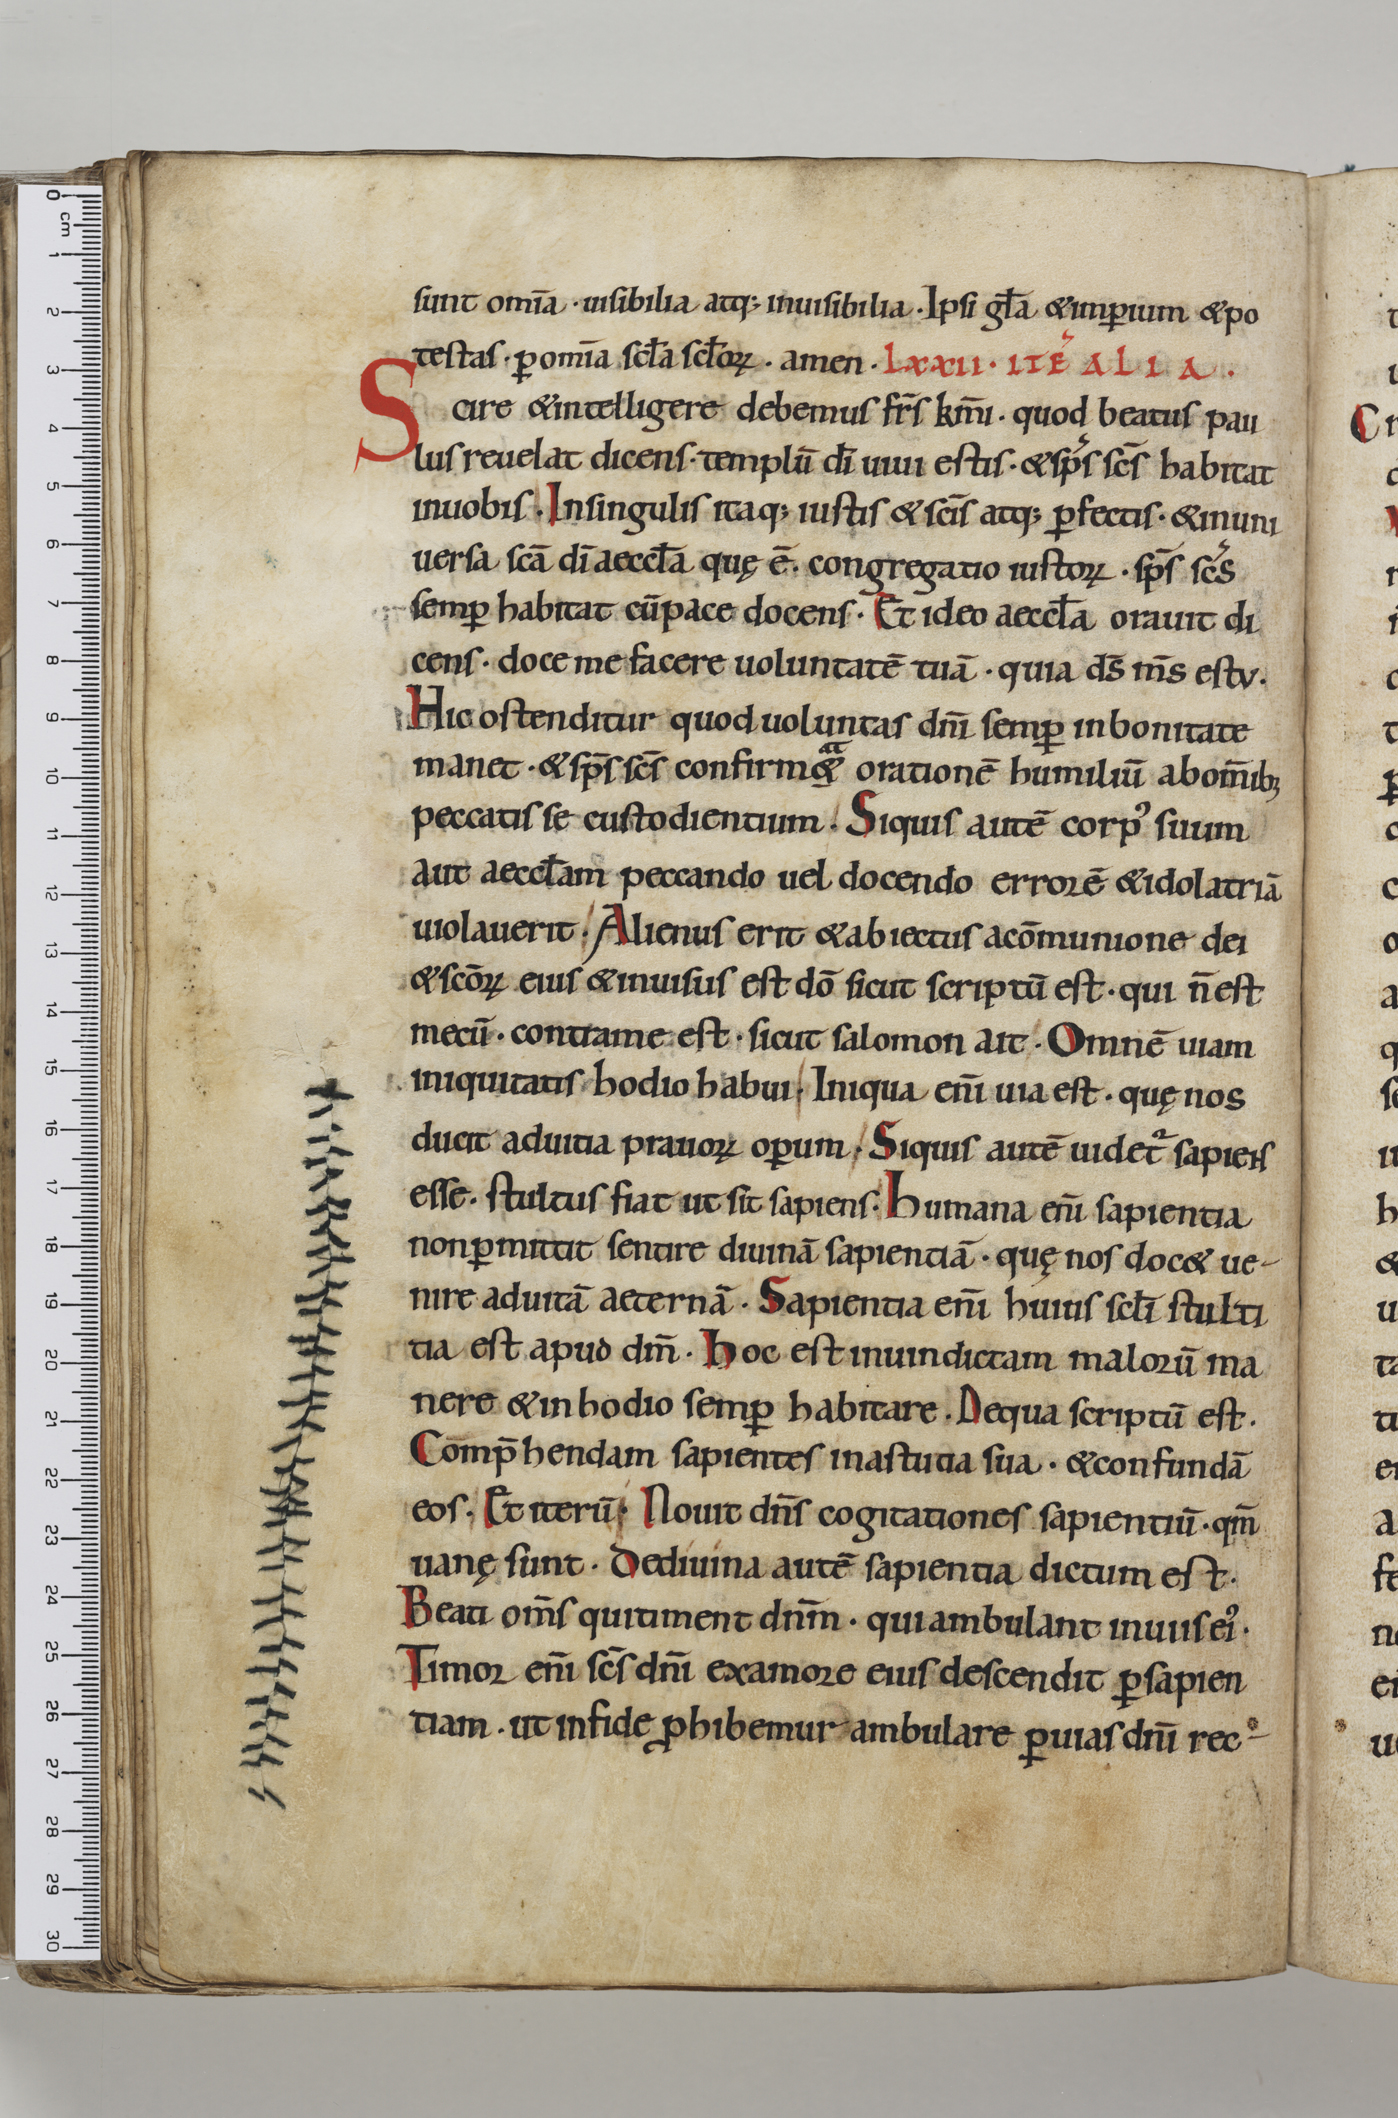 sunt omīa · uisibilia atq; inuisibilia · Ipsi gła & imꝑium & po
testas · ꝑ omīa scła scłoꝝ · amen · LXXII · ITĒ ALIA ·
Scire & intelligere debemus fr̄s km̄i · quod beatus pau
lus reuelat dicens · templū dī uiui estis · & sp̄s sc̄s habitat
in uobis · In singulis itaq; iustis & sc̄is atq; ꝑfectis · & in uni
uersa scā dī aeccła quę ē · congregatio iustoꝝ · sp̄s sc̄s
semꝑ habitat cū pace docens · Et ideo aeccła orauit di
cens · doce me facere uoluntatē tuā · quia ds̄ ms̄ es tv ·
Hic ostenditur quod uoluntas dn̄i semꝑ in bonitate
manet · & sp̄s sc̄s confirm& at orationē humiliū ab om̄ibꝫ
peccatis se custodientium · Siquis autē corpꝰ suum
aut aeccłam peccando uel docendo errorē & idolatriā
uiolauerit · Alienus erit & abiectus a cōmunione dei
& scōꝝ eius & inuisus est dō sicut scriptū est · qui n̄ est
mecū · contra me est · sicut salomon ait · Omnē uiam
iniquitatis hodio habui · Iniqua em̄ uia est · quę nos
ducit ad uitia prauoꝝ oꝑum · Siquis autē uidet᷑ sapiens
esse · stultus fiat ut sit sapiens · humana em̄ sapientia
non ꝑmittit sentire diuinā sapientiā · quę nos doc& ue-
nire ad uitā aeternā · Sapientia em̄ huius scłi stulti
tia est apud dm̄ · hoc est in uindictam malorū ma
nere & in hodio semꝑ habitare · De qua scriptū est ·
Comp̄hendam sapientes in astutia sua · & confundā
eos · Et iterū · Nouit dn̄s cogitationes sapientiū · qm̄
uanę sunt · De diuina autē sapientia dictum est ·
Beati om̄s qui timent dn̄m · qui ambulant in uiis eiꝰ ·
Timor em̄ sc̄s dn̄i ex amore eius descendit ꝑ sapien
tiam · ut in fide ꝓhibemur ambulare ꝑ uias dn̄i rec-
0 cm 1 2 3 4 5 6 7 8 9 10 11 12 13 14 15 16 17 18 19 20 21 22 23 24 25 26 27 28 29 30